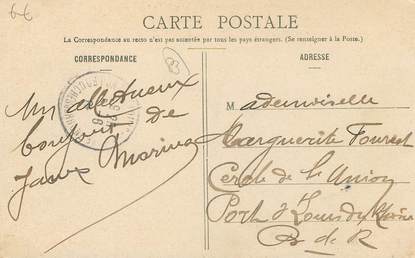 6€
CARTE POSTALE
La Correspondance au recto n'est pas acceptée par tous les pays étrangers. (Se renseigner à la Poste.)
CORRESPONDANCE
ADRESSE
Un affectueux
bonjour de
Mademoiselle
Marguerite Fourest
Cercle de l'Union
Port St Louis du Rhône
B de R